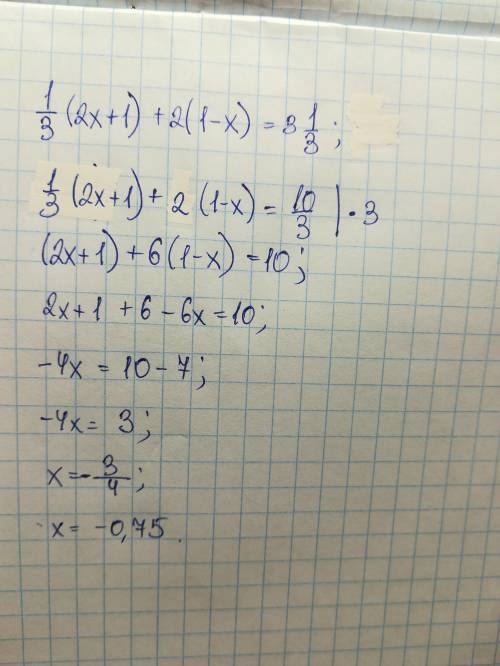 1/3 (2x+1) + 2(1-x) = 3 1/3;
1/3 (2x+1) + 2 (1-x) = 10/3 | · 3
(2x+1) + 6(1-x) = 10;
2x+1 + 6 - 6x = 10;
-4x = 10 - 7;
-4x = 3;
x = -3/4;
x = -0,75.